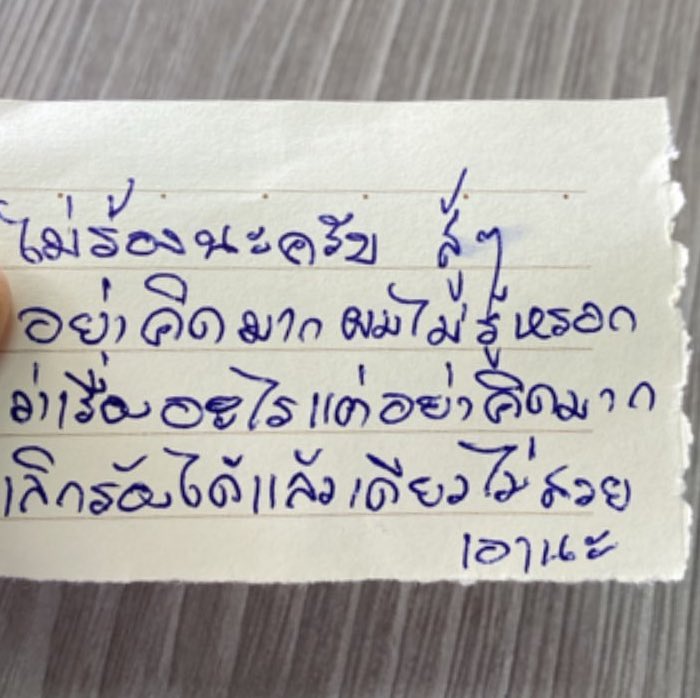 ไม่ร้องนะครับ สู้ๆ
อย่าคิดมาก ผมไม่รู้หรอก
ว่าเรื่องอะไรแต่อย่าคิดมาก
เลิกร้องได้แล้วเดียวไม่สวย
เอานะ